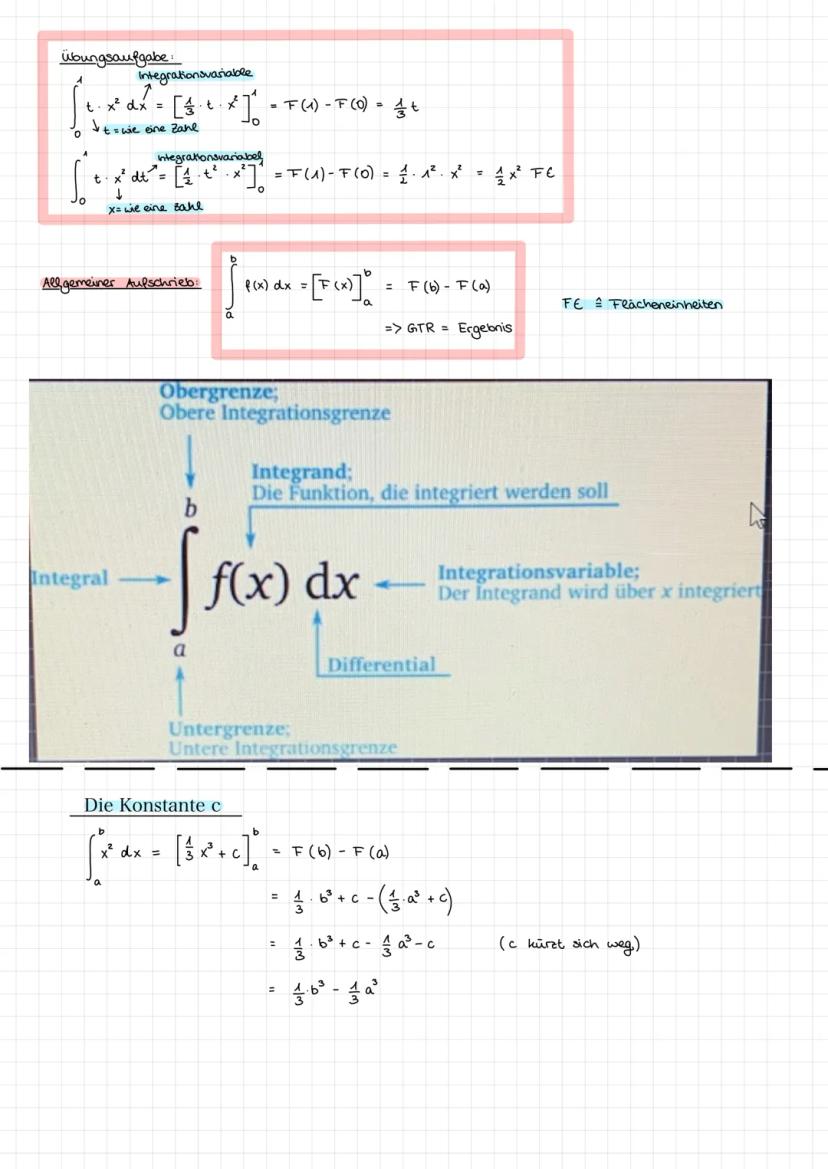 Übungsaufgabe:
Integrationsvariable
∫₀¹ t · x² dx = [1/3 · t · x²]₀¹ = F(1) - F(0) = 1/3 t
t = wie eine Zahl
Integrationsvariabel
∫₀¹ t · x² dt = [1/2 · t² · x²]₀¹ = F(1) - F(0) = 1/2 · 1² · x² = 1/2 x² FE
x = wie eine Zahl
Allgemeiner Aufschrieb: ∫ₐᵇ f(x) dx = [F(x)]ₐᵇ = F(b) - F(a)
=> GTR = Ergebnis
FE ≙ Flächeneinheiten
Obergrenze;
Obere Integrationsgrenze
Integrand;
Die Funktion, die integriert werden soll
b
Integral
∫ f(x) dx
Integrationsvariable;
Der Integrand wird über x integriert
a
Differential
Untergrenze;
Untere Integrationsgrenze
Die Konstante c
∫ₐᵇ x² dx = [1/3 x³ + c]ₐᵇ = F(b) - F(a)
= 1/3 · b³ + c - (1/3 · a³ + c)
= 1/3 · b³ + c - 1/3 a³ - c (c kürzt sich weg)
= 1/3 · b³ - 1/3 a³